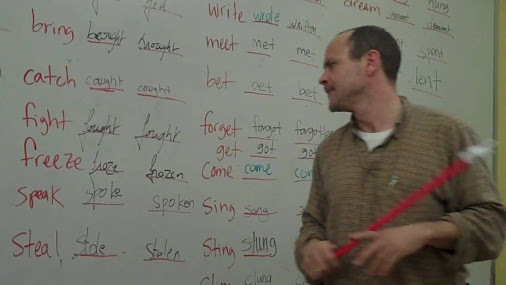 write wrote written
dream
hung
bring brought brought
meet met met
catch caught caught
bet bet bet
lent
fight fought fought
forget forgot forgotten
get got got
freeze froze frozen
come came
speak spoke spoken
sing sang
steal stole stolen
sting stung